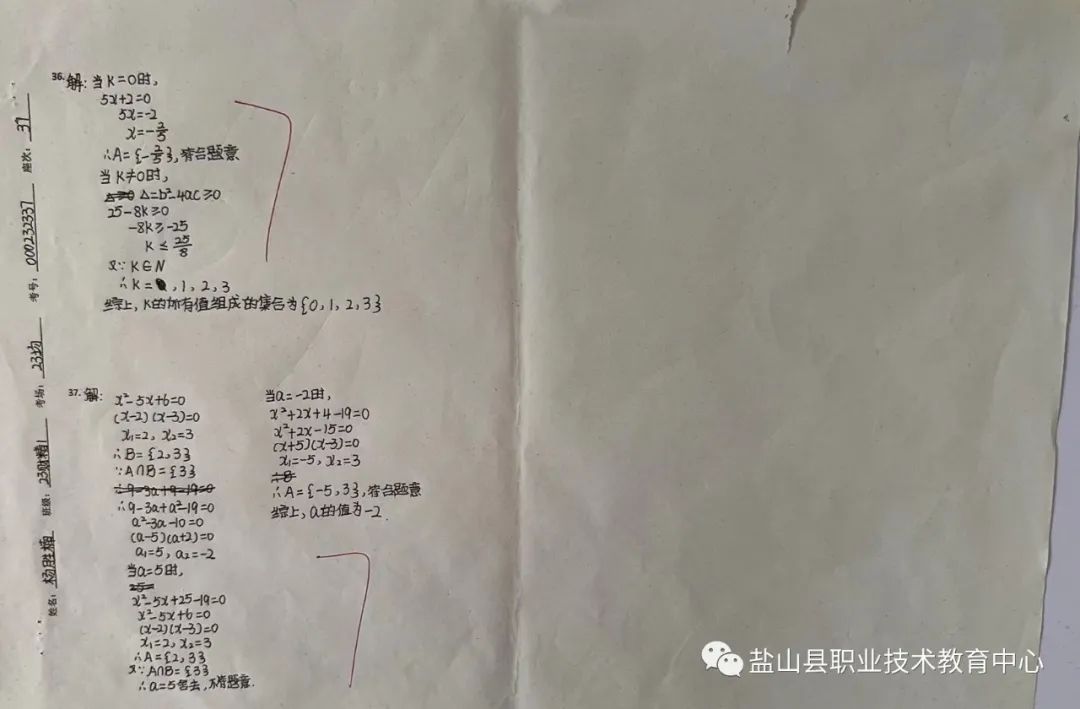 36. 解: 当K=0时,
5x+2=0
5x=-2
x=-2/5
∴A={-2/5}, 符合题意
当K≠0时,
Δ=b²-4ac≥0
25-8K≥0
-8K≥-25
K≤25/8
又∵K∈N
∴K= , 1, 2, 3
综上, K的所有值组成的集合为{0, 1, 2, 3}
37. 解: x²-5x+6=0
(x-2)(x-3)=0
x₁=2, x₂=3
∴B={2,3}
∵A∩B={3}
∴9-3a+a²-19=0
∴9-3a+a²-19=0
a²-3a-10=0
(a-5)(a+2)=0
a₁=5, a₂=-2
当a=5时,
25=
x²-5x+25-19=0
x²-5x+6=0
(x-2)(x-3)=0
x₁=2, x₂=3
∴A={2,3}
又∵A∩B={3}
∴a=5舍去, 不符题意.
当a=-2时,
x²+2x+4-19=0
x²+2x-15=0
(x+5)(x-3)=0
x₁=-5, x₂=3
∴A={-5, 3}, 符合题意
综上, a的值为-2.
座次: 37
考号: 000232337
考场: 23均
班级:
姓名: 杨胜楠
盐山县职业技术教育中心